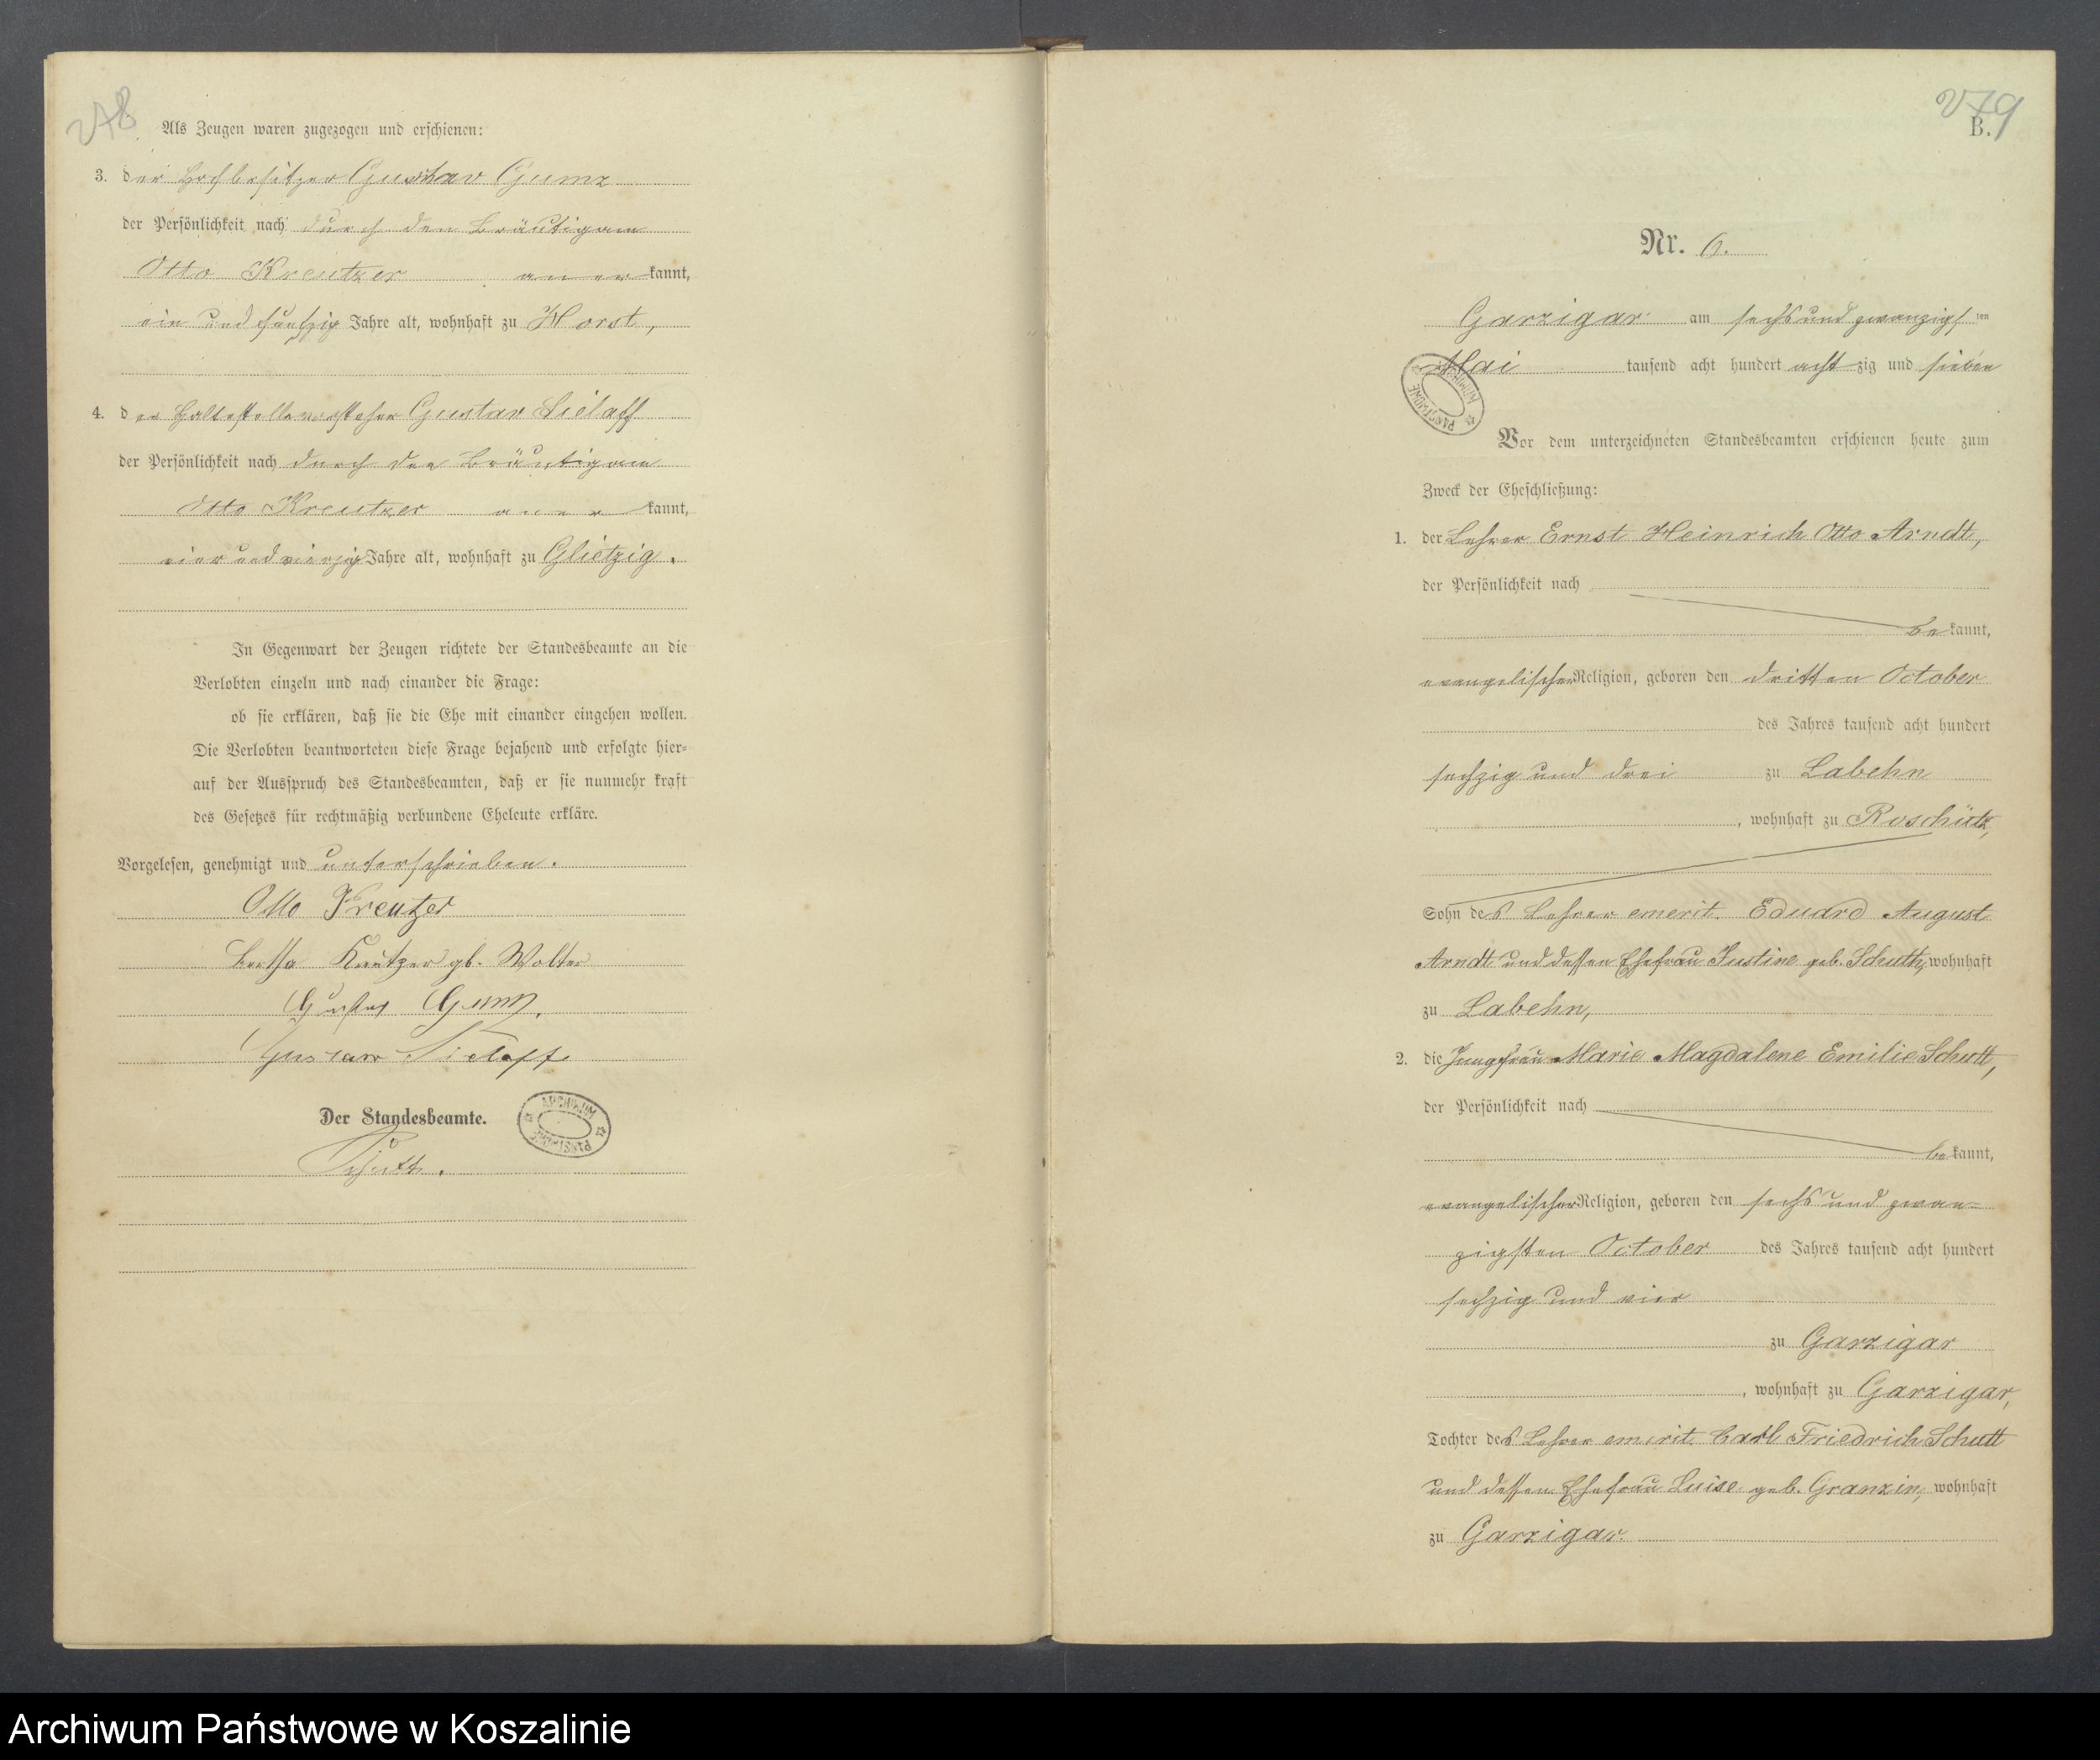 278
Als Zeugen waren zugezogen und erschienen:
3. der Hofbesitzer Gustav Gumz
der Persönlichkeit nach durch den Bräutigam
Otto Kreutzer anerkannt,
ein und fünfzig Jahre alt, wohnhaft zu Horst,
4. der Haltestellevorsteher Gustav Lielaff
der Persönlichkeit nach durch den Bräutigam
Otto Kreutzer anerkannt,
vier und vierzig Jahre alt, wohnhaft zu Glietzig.
In Gegenwart der Zeugen richtete der Standesbeamte an die
Verlobten einzeln und nach einander die Frage:
ob sie erklären, daß sie die Ehe mit einander eingehen wollen.
Die Verlobten beantworteten diese Frage bejahend und erfolgte hier-
auf der Ausspruch des Standesbeamten, daß er sie nunmehr kraft
des Gesetzes für rechtmäßig verbundene Eheleute erkläre.
Vorgelesen, genehmigt und unterschrieben.
Otto Kreutzer
Bertha Kreutzer gb. Wolter
Gustav Gumz.
Gustaw
Der Standesbeamte.
ARCHIWUM
Schutt.
279
B.
Nr. 6.
Garzigar am sechs und zwanzigsten
Mai tausend acht hundert achtzig und sieben
Vor dem unterzeichneten Standesbeamten erschienen heute zum
Zweck der Eheschließung:
1. der Lehrer Ernst Heinrich Otto Arndt,
der Persönlichkeit nach
bekannt,
evangelischer Religion, geboren den dritten October
des Jahres tausend acht hundert
sechzig und drei zu Labehn
, wohnhaft zu Roschütz,
Sohn des Lehrer emerit. Eduard August
Arndt und dessen Ehefrau Justine geb. Schutt, wohnhaft
zu Labehn,
2. die Jungfrau Marie Magdalene Emilie Schutt,
der Persönlichkeit nach
bekannt,
evangelischer Religion, geboren den sechs und zwan-
zigsten October des Jahres tausend acht hundert
sechzig und vier
zu Garzigar
, wohnhaft zu Garzigar,
Tochter des Lehrer emerit. Carl Friedrich Schutt
und dessen Ehefrau Luise geb. Granzin, wohnhaft
zu Garzigar.
Archiwum Państwowe w Koszalinie